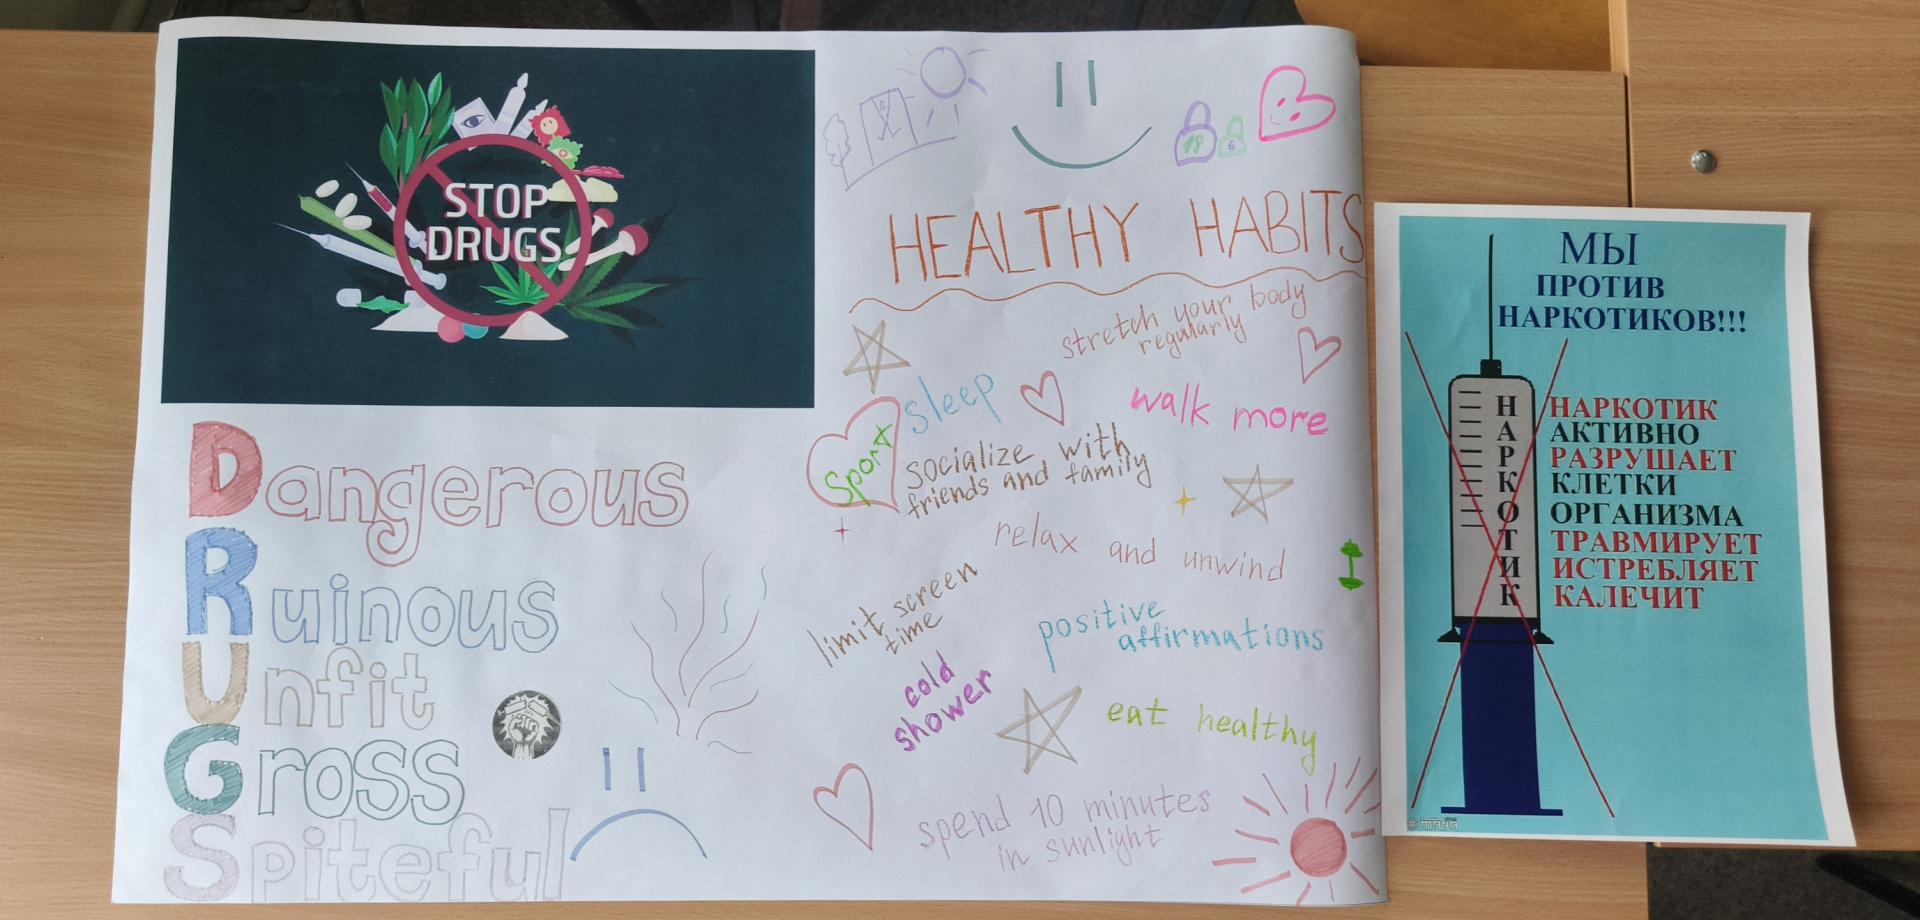 STOP
DRUGS
Dangerous
Ruinous
Unfit
Gross
Spiteful
18
6
HEALTHY HABITS
stretch your body
regularly
sleep
walk more
Sport
socialize with
friends and family
relax and unwind
limit screen
time
positive
affirmations
cold
shower
eat healthy
spend 10 minutes
in sunlight
МЫ
ПРОТИВ
НАРКОТИКОВ!!!
НАРКОТИК
НАРКОТИК
АКТИВНО
РАЗРУШАЕТ
КЛЕТКИ
ОРГАНИЗМА
ТРАВМИРУЕТ
ИСТРЕБЛЯЕТ
КАЛЕЧИТ